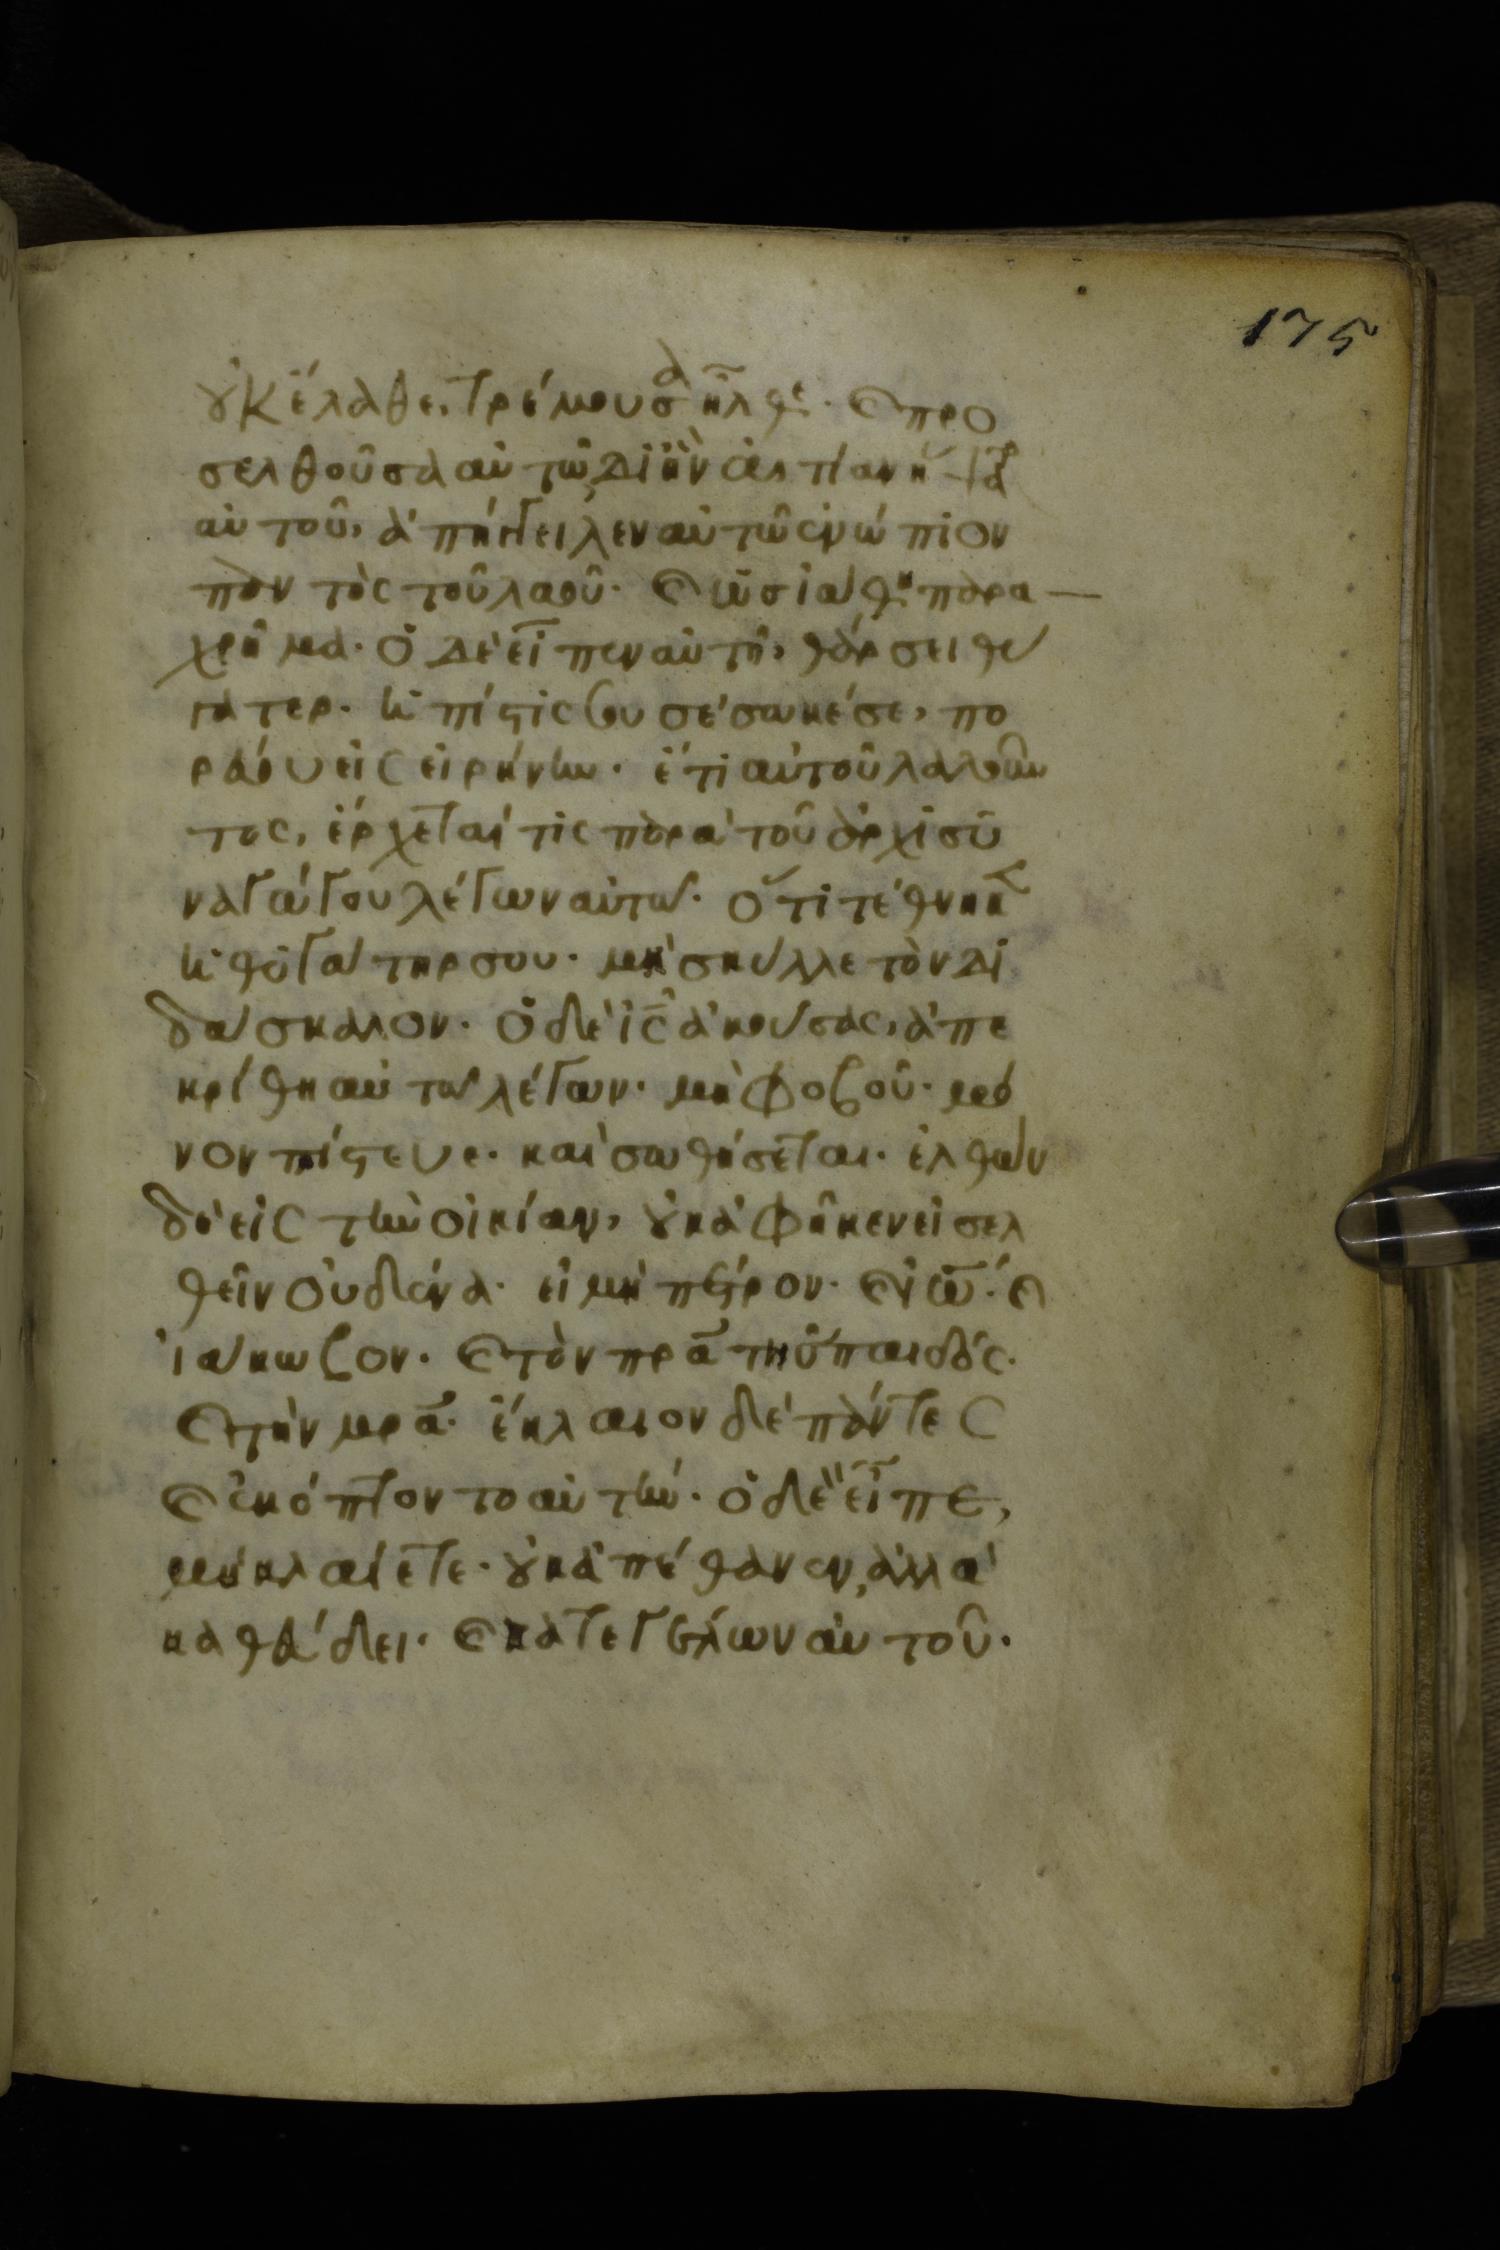 175
οὐκ ἔλαθε, τρέμουσα ἦλθε· καὶ προ
σελθοῦσα αὐτῶ, δι ἣν αἰτίαν ἥψατο
αὐτοῦ, ἀπήγγειλεν αὐτῶ ἐνώπιον
παντὸς τοῦ λαοῦ· καὶ ὡς ἰάθη παρα
χρῆμα· ὁ δὲ εἶπεν αὐτῆ, θάρσει θύ
γατερ· ἡ πίστις σου σέσωκέ σε, πο
ρεύου εἰς εἰρήνην· ἔτι αὐτοῦ λαλοῦν
τος, ἔρχεταί τις παρὰ τοῦ ἀρχισυ
ναγώγου λέγων αὐτῶ· ὅτι τέθνηκεν
ἡ θυγάτηρ σου· μὴ σκύλλε τὸν δι
δάσκαλον· ὁ δὲ ἰς ἀκούσας, ἀπε
κρίθη αὐτῶ λέγων· μὴ φοβοῦ· μό
νον πίστευε· καὶ σωθήσεται· ἐλθὼν
δὲ εἰς τὴν οἰκίαν, οὐκ ἀφῆκεν εἰσελ
θεῖν οὐδένα· εἰ μὴ πέτρον· καὶ ἰω· καὶ
ἰάκωβον· καὶ τὸν πρα τῆς παιδός·
καὶ τὴν μρα· ἔκλαιον δὲ πάντες
καὶ ἐκόπτοντο αὐτήν· ὁ δὲ εἶπε,
μὴ κλαίετε· οὐκ ἀπέθανεν, ἀλλὰ
καθεύδει· καὶ κατεγέλων αὐτοῦ·